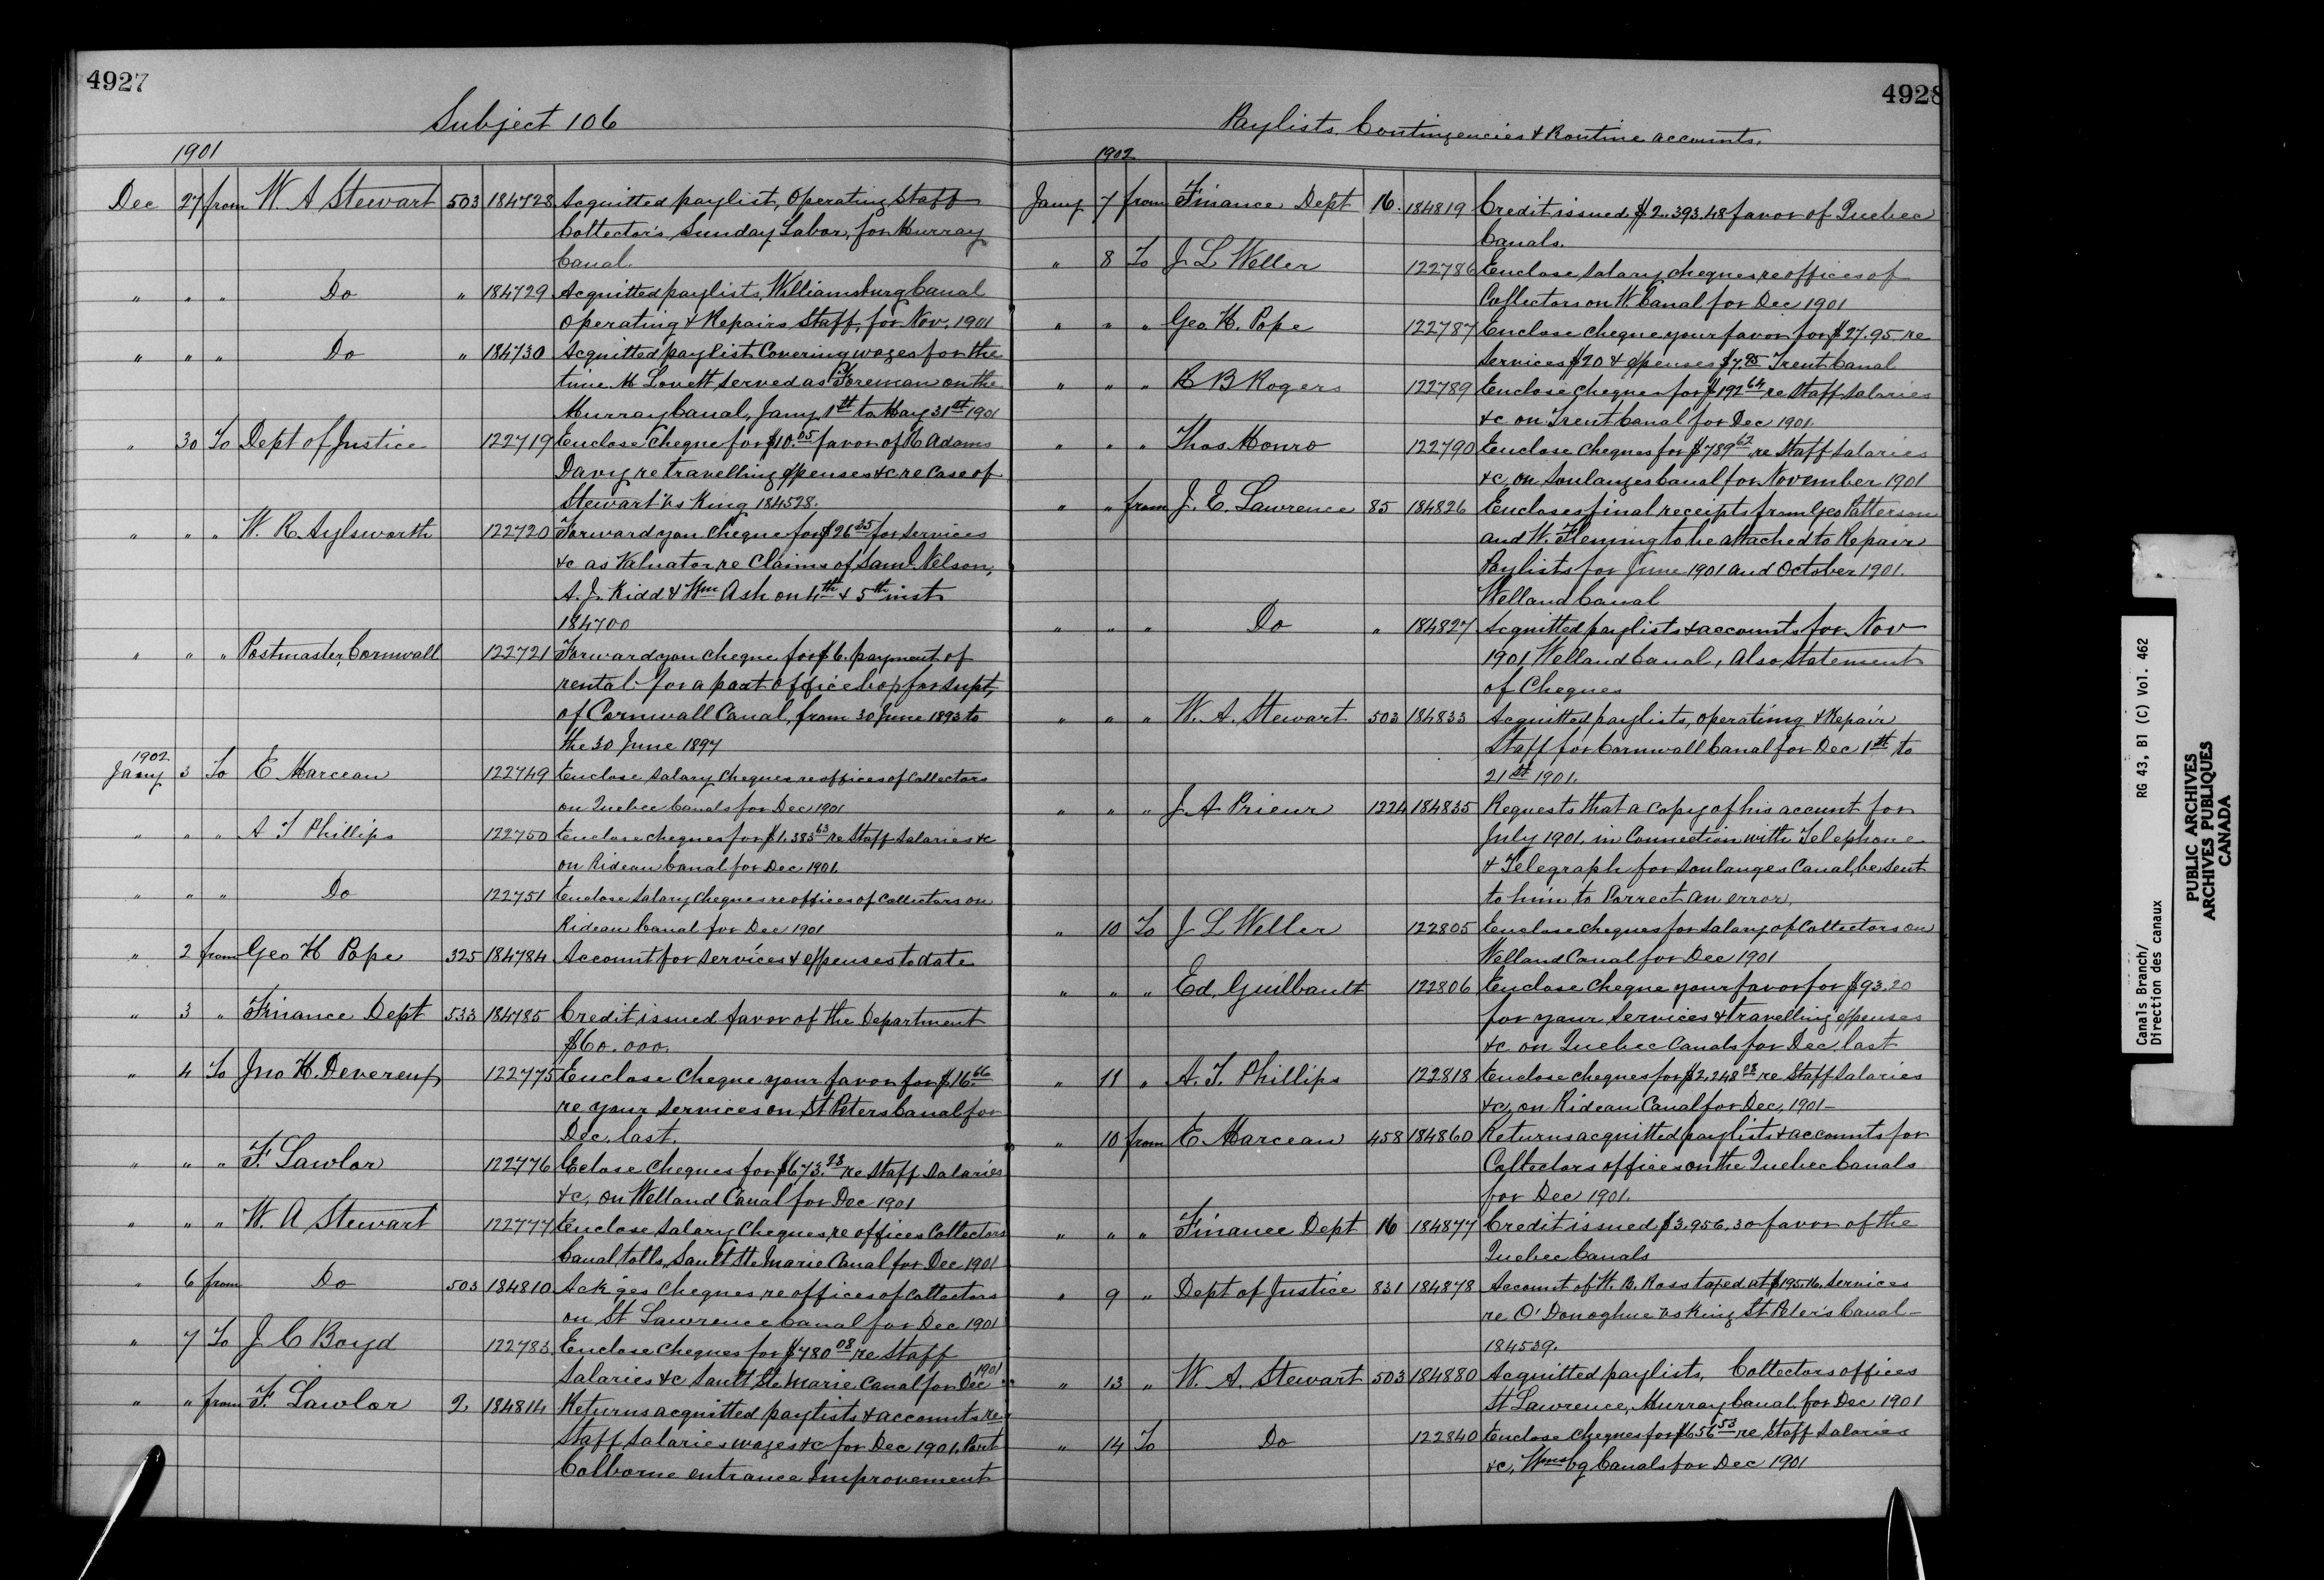 4927
Subject 106
1901
Dec 27 from W. A Stewart 503 184728 Acquitted paylist, Operating Staff
Collector's, Sunday Labor, for Murray
Canal
" " " Do " 184729 Acquitted paylists, Williamsburg Canal
Operating & Repairs Staff, for Nov. 1901
" " " Do " 184730 Acquitted paylist Covering wages for the
time M Lovett served as Foreman on the
Murray Canal, Jany 1st to May 31st 1901
" 30 To Dept of Justice 122719 Enclose Cheque for $10.05 favor of Adams
Davy re travelling expenses &c re Case of
Stewart vs King 184528.
" " " W. R. Aylsworth 122720 Forward you cheque for $26 35 for services
&c as Valuator re Claims of Saml. Nelson,
A. J. Kidd & Wm Ash on 4th & 5th inst
184700
" " " Postmaster, Cornwall 122721 Forward you cheque for $6. payment of
rental for a post office box for Supt,
of Cornwall Canal, from 30 June 1893 to
the 30 June 1897
1902
Jany 3 To E Marceau 122749 Enclose Salary cheques re offices of Collectors
on Quebec Canals for Dec 1901
" " " A T Phillips 122750 Enclose cheques for $1,383 63 re Staff Salaries &c
on Rideau Canal for Dec 1901.
" " " Do 122751 Enclose Salary cheques re offices of Collectors on
Rideau Canal for Dec 1901
" 2 from Geo H Pope 325 184784 Account for services & expenses to date
" 3 " Finance Dept 533 184785 Credit issued favor of the Department
$60.000.
" 4 To Jno H. Devereux 122775 Enclose Cheque your favor for $16.66
re your services on St Peters Canal for
Dec. last.
" " " F. Lawlor 122776 Eclose Cheques for $673.23 re Staff Salaries
&c, on Welland Canal for Dec 1901
" " " W. A Stewart 122777 Enclose Salary Cheques, re offices Collectors
Canal tolls, Sault Ste Marie Canal for Dec 1901
" 6 from Do 503 184810 Ack'ges Cheques re offices of Collectors
on St Lawrence Canal for Dec 1901
" 7 To J C Boyd 122783. Enclose Cheques for $780 08 re Staff
Salaries &c Sault Ste Marie Canal for Dec 1901
" " from F. Lawlor 2. 184814 Returns acquitted paylists & accounts re
Staff Salaries wages &c for Dec 1901. Port
Colborne entrance Improvement
4928
Paylists, Contingencies & Routine accounts.
1902
Jany 7 from Finance Dept 16. 184819 Credit issued $2.393.48 favor of Quebec
Canals.
" 8 To J L Weller 122786 Enclose Salary cheques re offices of
Collectors on W. Canal for Dec 1901
" " " Geo. H. Pope 122787 Enclose cheque your favor for $27.95 re
Services $20 & expenses $7.95 Trent Canal
" " " R B Rogers 122789 Enclose cheques for $192 64 re Staff Salaries
&c on Trent Canal for Dec 1901.
" " " Thos. Monro 122790 Enclose cheques for $789 62 re Staff Salaries
&c. on Soulanges Canal for November 1901
" " from J. E. Lawrence 85 184826 Encloses final receipts from Geo Patterson
and W. Fleming to be attached to Repair
Paylists for June 1901 and October 1901.
Welland Canal
" " " Do " 184827 Acquitted paylists & accounts for Nov
1901 Welland Canal, also Statement
of Cheques
" " " W. A. Stewart 503 184833 Acquitted paylists, operating & Repair
Staff for Cornwall Canal for Dec 1st to
21st 1901.
" " " J A Prieur 1224 184835 Requests that a copy of his account for
July 1901. in Connection with Telephone
& Telegraph for Soulanges Canal, be sent
to him to Correct an error,
" 10 To J L Weller 122805 Enclose cheques for Salary of Collectors on
Welland Canal for Dec 1901
" " " Ed. Guilbault 122806 Enclose Cheque your favor for $93.20
for your Services & travelling expenses
&c on Quebec Canals for Dec. last
" 11 " A. T. Phillips 122818 Enclose cheques for $2,248 28 re Staff Salaries
&c, on Rideau Canal for Dec, 1901 –
" 10 from E Marceau 458 184860 Returns acquitted paylists & accounts for
Collectors offices on the Quebec Canals
for Dec 1901.
" " " Finance Dept 16 184877 Credit issued $3.956.30 favor of the
Quebec Canals
" 9 " Dept of Justice 831 184878 Account of H. B. Ross taxed at $195.16. Services
re O'Donoghue vs King St Peter's Canal –
184539.
" 13 " W. A. Stewart 503 184880 Acquitted paylists, Collectors offices
St Lawrence, Murray Canal, for Dec 1901
" 14 To Do 122840 Enclose cheques for $656 53 re Staff Salaries
&c, Wmsbg Canals for Dec 1901
Canals Branch/ RG 43, B1 (C) Vol. 462
Direction des canaux
PUBLIC ARCHIVES
ARCHIVES PUBLIQUES
CANADA